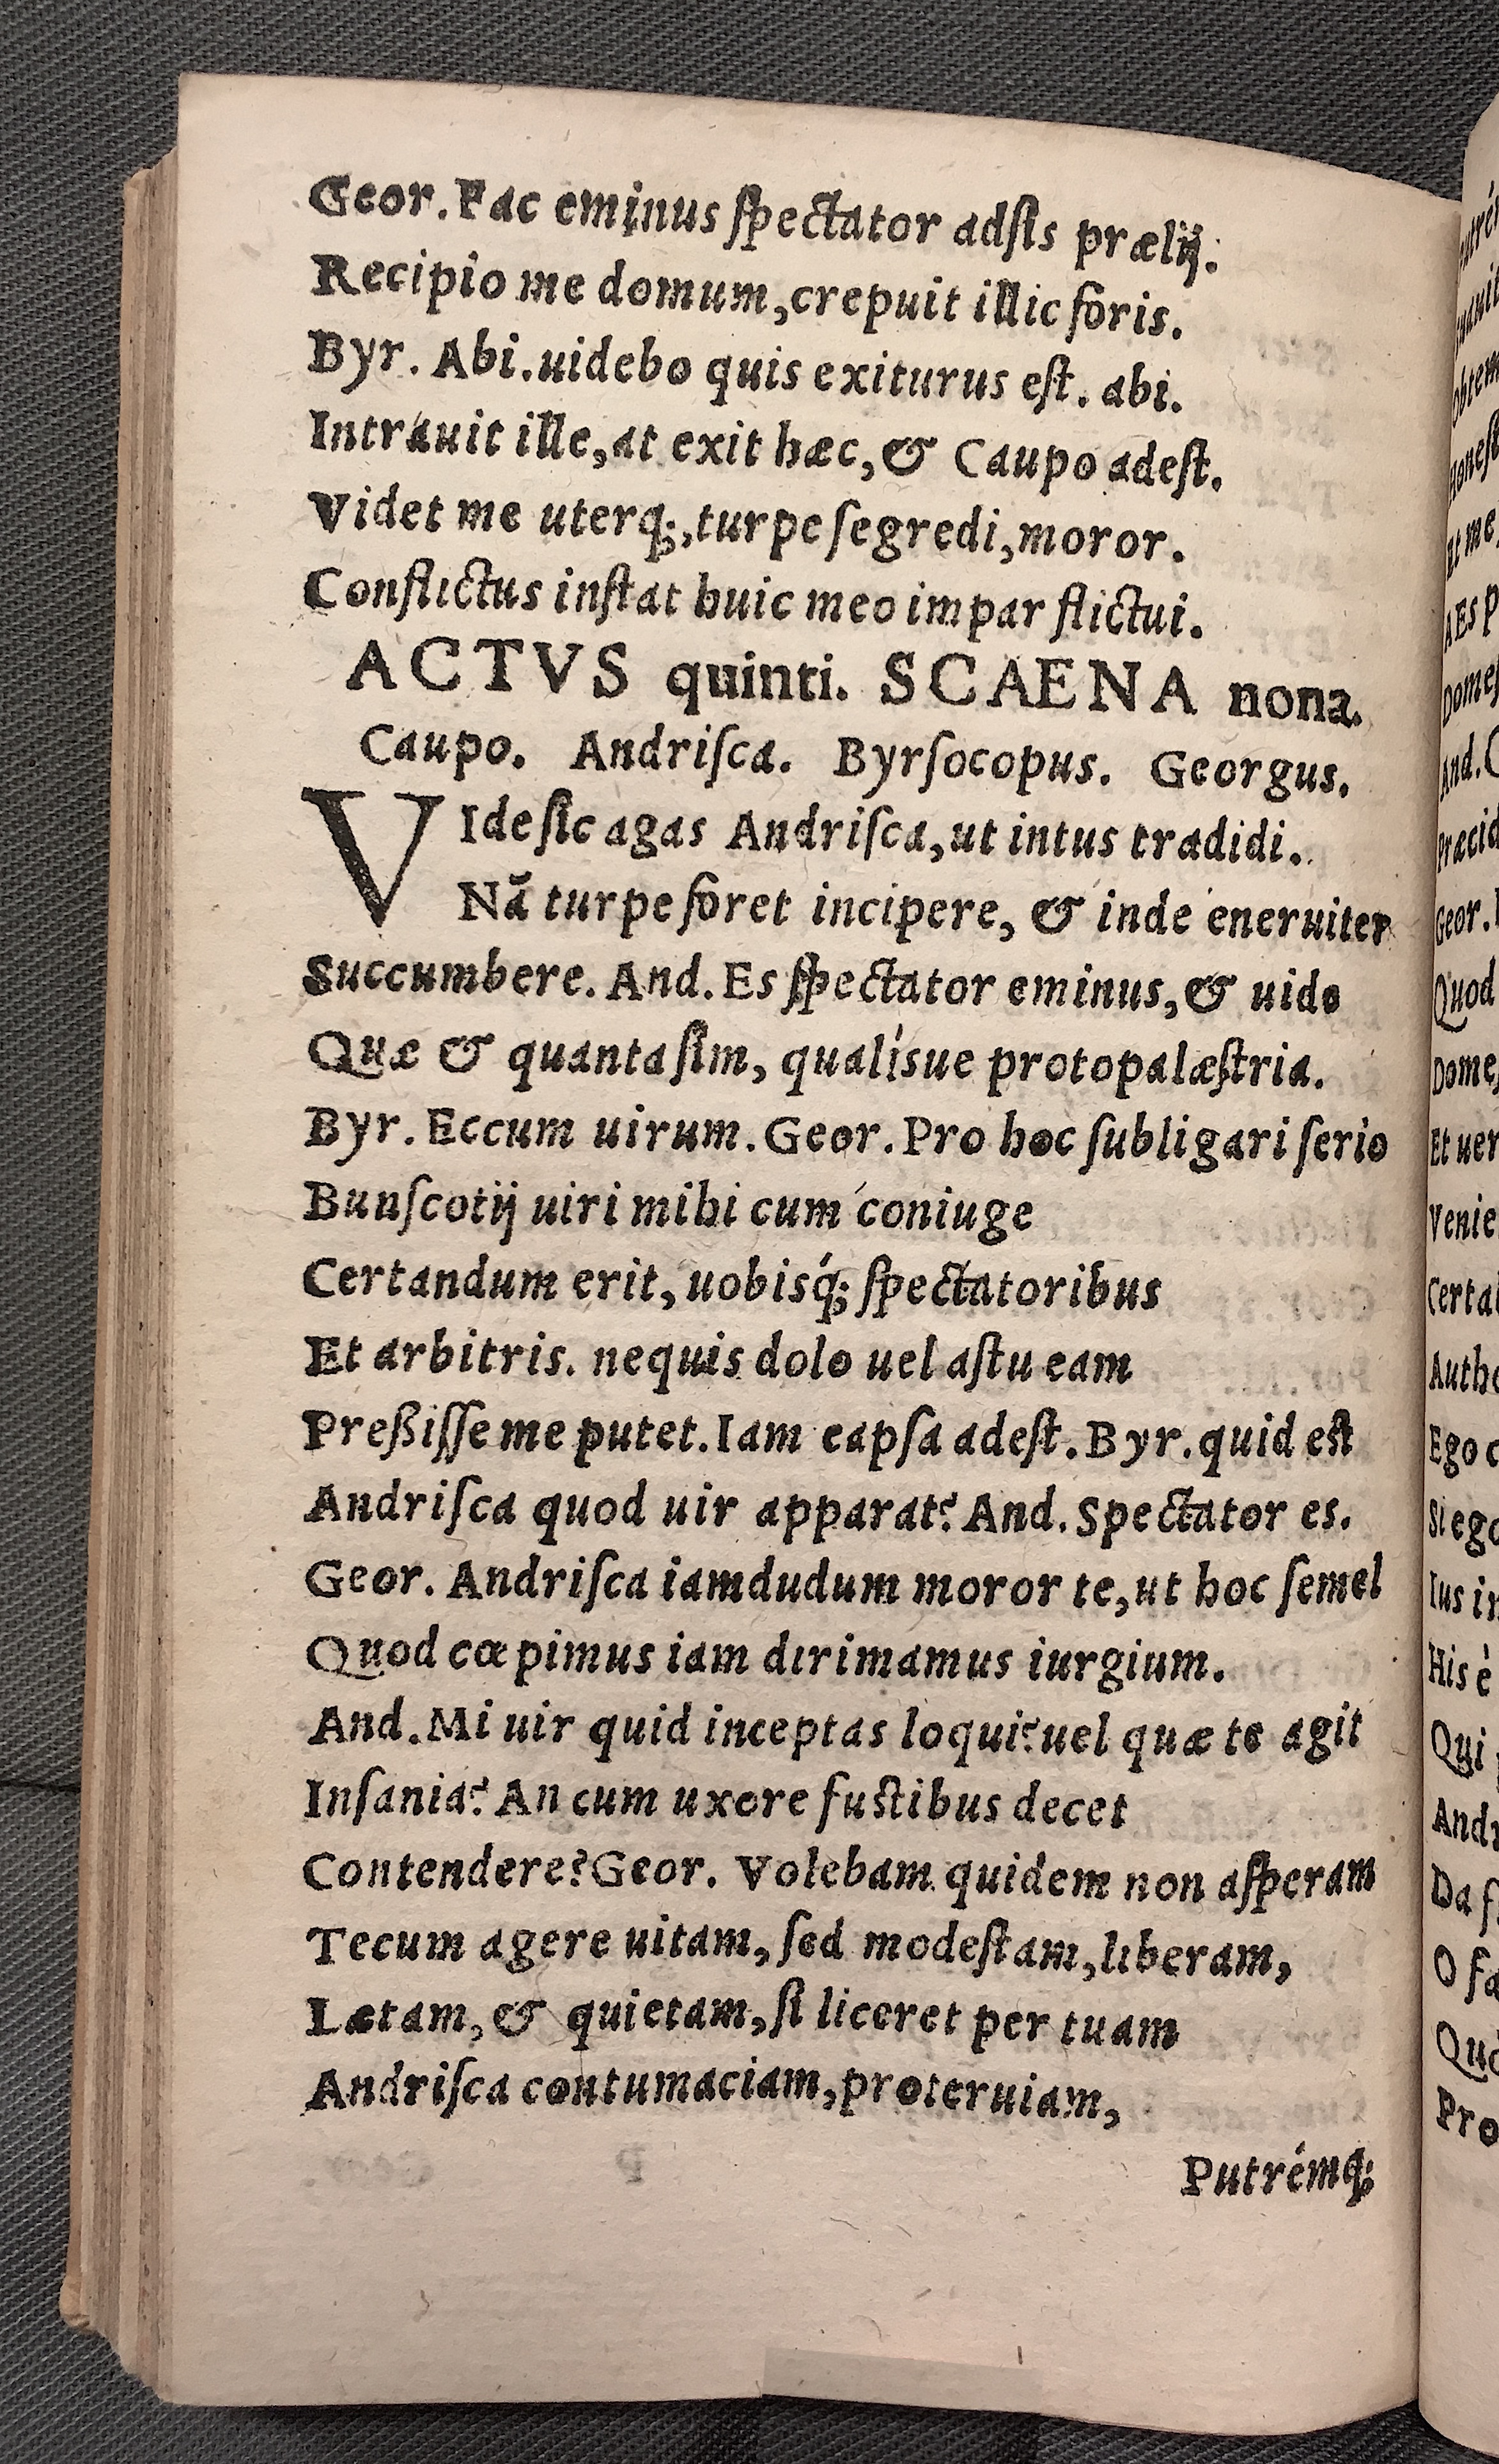 Geor. Fac eminus ſpectator adſis prælij.
Recipio me domum, crepuit illic foris.
Byr. Abi. uidebo quis exiturus eſt. abi.
Intrauit ille, at exit hæc, & Caupo adeſt.
Videt me uterq;, turpe ſegredi, moror.
Conflictus inſtat huic meo impar flictui.
ACTVS quinti. SCAENA nona.
Caupo. Andriſca. Byrſocopus. Georgus.
VIde ſic agas Andriſca, ut intus tradidi.
Nā turpe foret incipere, & inde eneruiter
Succumbere. And. Es ſpectator eminus, & uide
Quæ & quanta ſim, qualísue protopalæſtria.
Byr. Eccum uirum. Geor. Pro hoc ſubligari ſerio
Bunſcotij uiri mihi cum coniuge
Certandum erit, uobisq́; ſpectatoribus
Et arbitris. nequis dolo uel aſtu eam
Preßiſſe me putet. Iam eapſa adeſt. Byr. quid eſt
Andriſca quod uir apparat? And. Spectator es.
Geor. Andriſca iamdudum moror te, ut hoc ſemel
Quod cœpimus iam dirimamus iurgium.
And. Mi uir quid inceptas loqui? uel quæ te agit
Inſania? An cum uxore fuſtibus decet
Contendere? Geor. Volebam quidem non aſperam
Tecum agere uitam, ſed modeſtam, liberam,
Lætam, & quietam, ſi liceret per tuam
Andriſca contumaciam, proteruiam,
Putrémq;